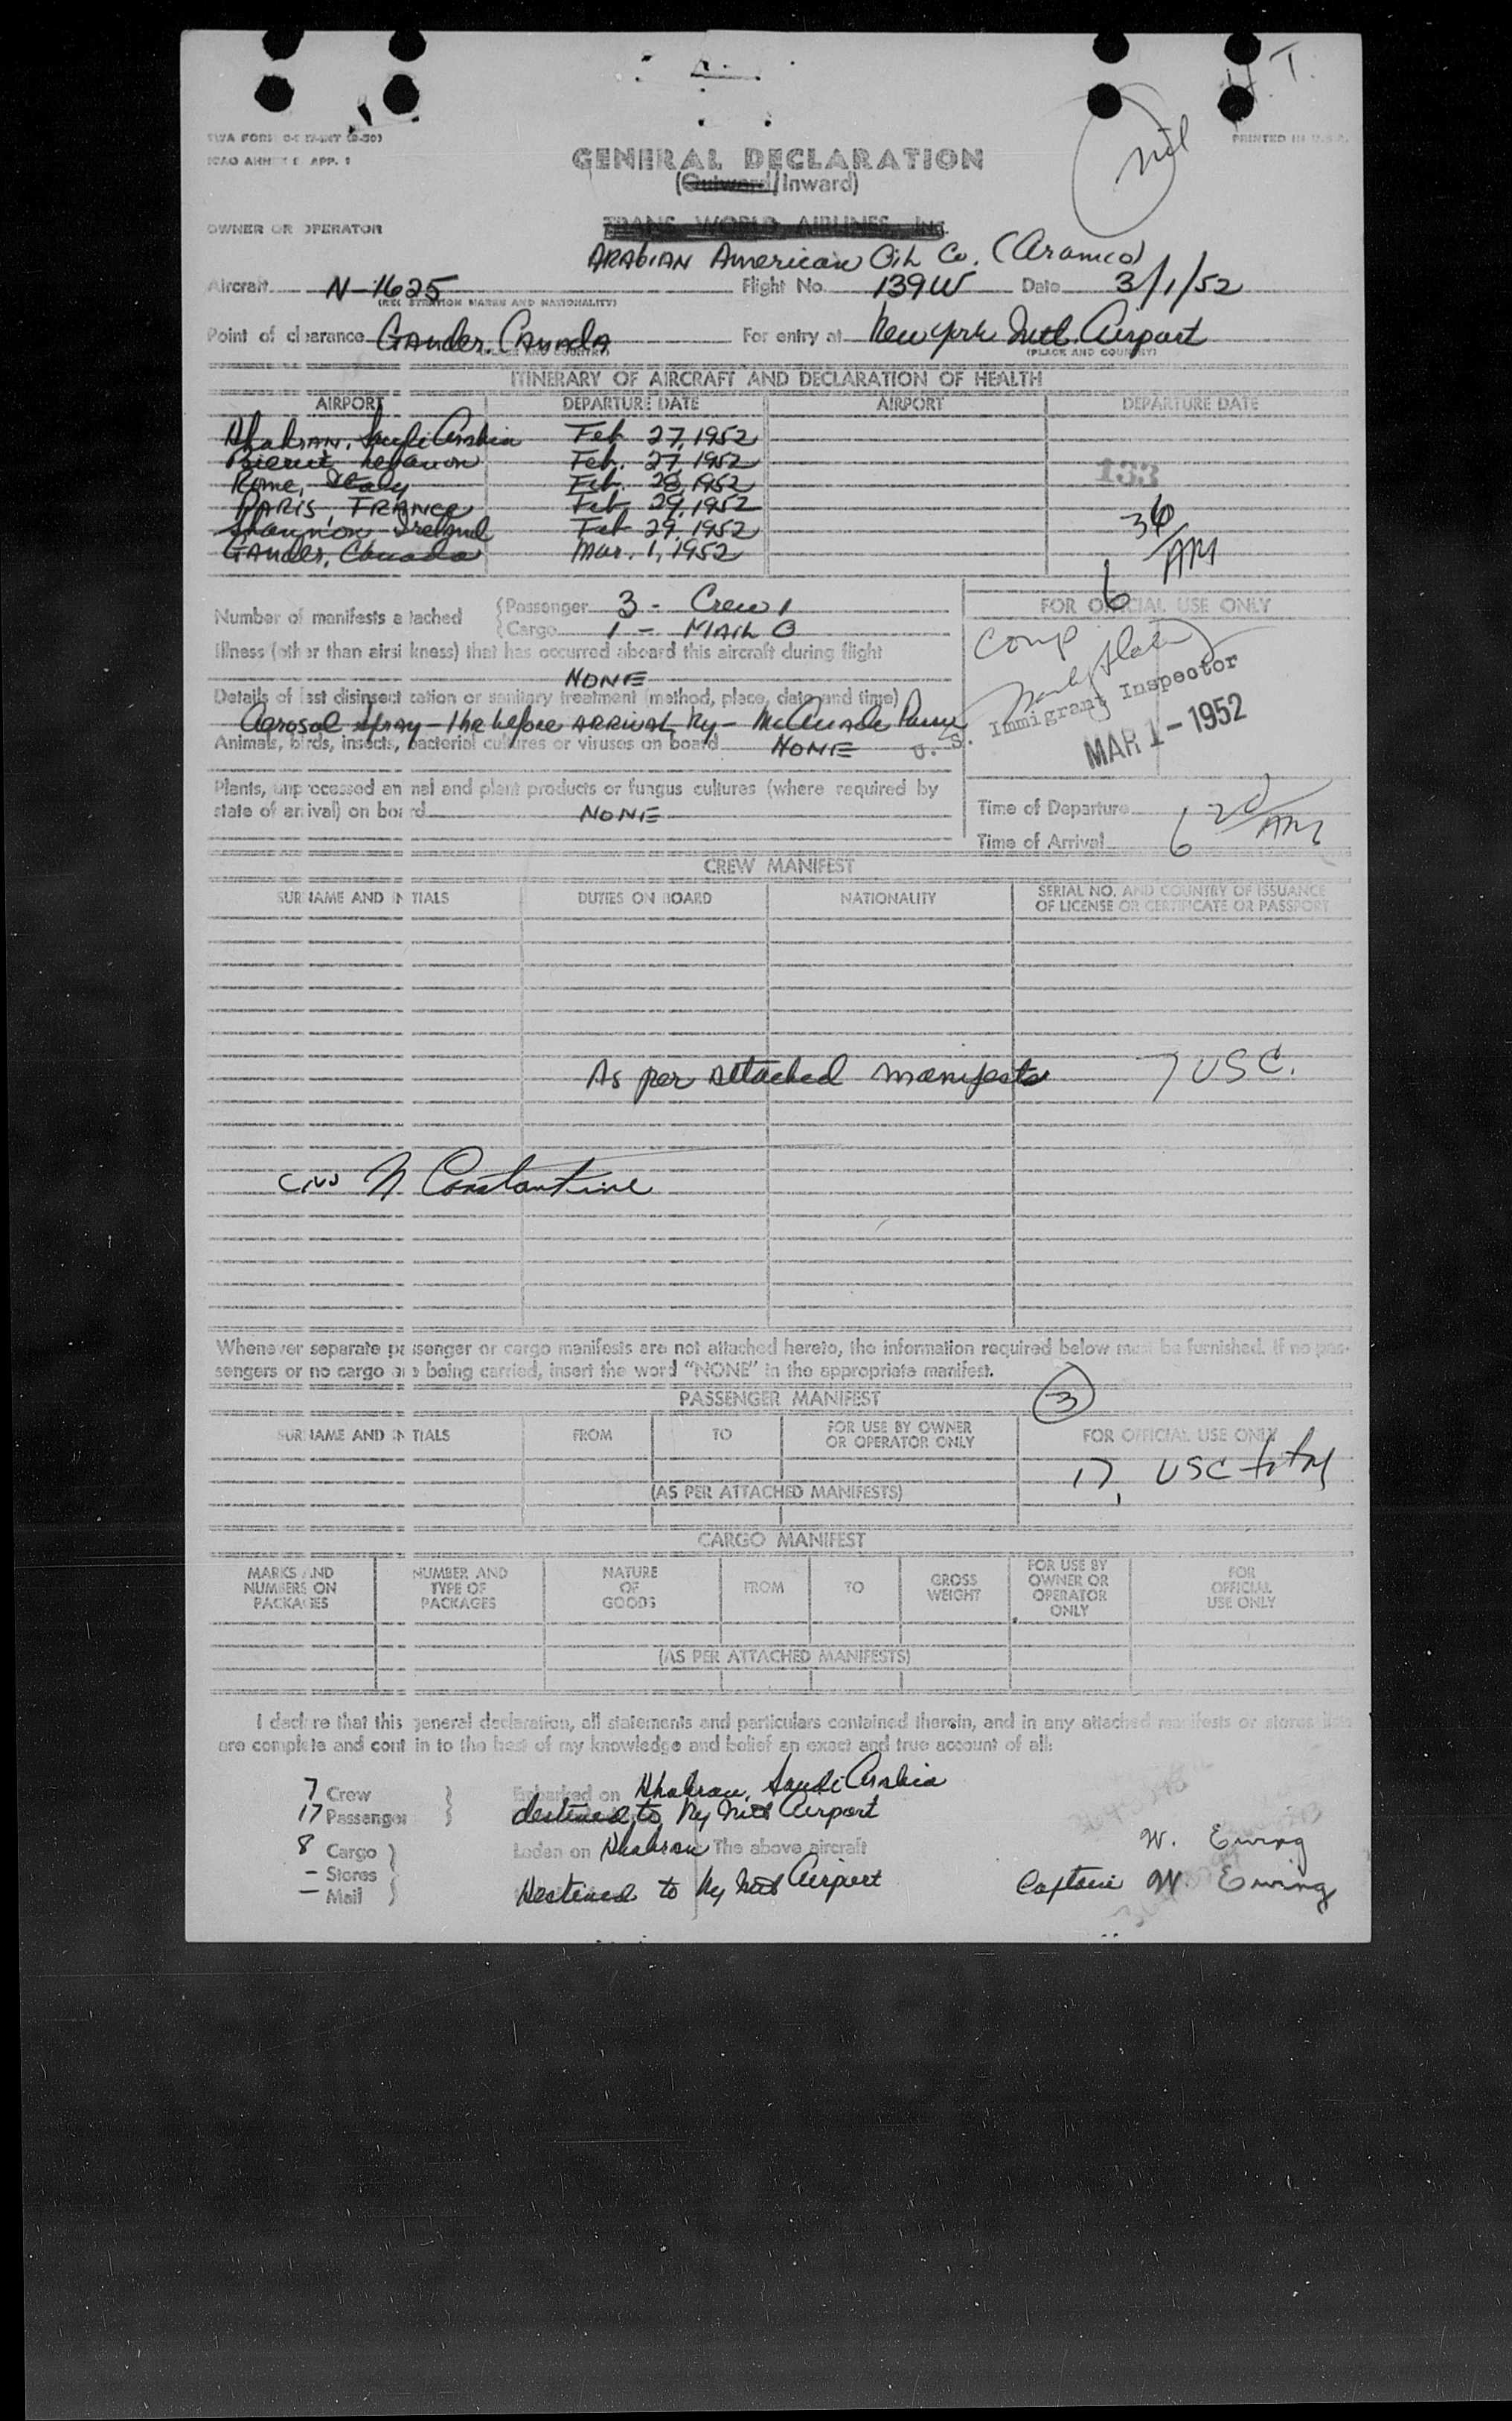 H. T.
nil
TWA FORM
PRINTED IN U.S.A.
ICAO ANNEX 9 APP. 1
GENERAL DECLARATION
(Outward/Inward)
OWNER OR OPERATOR
TRANS WORLD AIRLINES, Inc.
ARABIAN American Oil Co. (Aramco)
Aircraft N-1625 Flight No. 139W Date 3/1/52
(REGISTRATION MARKS AND NATIONALITY)
Point of clearance Gander, Canada For entry at New York Intl. Airport
(PLACE AND COUNTRY) (PLACE AND COUNTRY)
ITINERARY OF AIRCRAFT AND DECLARATION OF HEALTH
AIRPORT DEPARTURE DATE AIRPORT DEPARTURE DATE
Dhahran, Saudi Arabia Feb. 27, 1952
Beirut, Lebanon Feb. 27, 1952
133
Rome, Italy Feb. 28, 1952
PARIS, FRANCE Feb. 29, 1952
Shannon Ireland Feb 29, 1952
Gander, Canada Mar. 1, 1952
6 36/AM
Number of manifests attached
Passenger 3 - Crew 1
Cargo 1 - MAIL 0
FOR OFFICIAL USE ONLY
Comp
Illness (other than airsickness) that has occurred aboard this aircraft during flight
NONE
Details of last disinsectization or sanitary treatment (method, place, date and time)
Aerosol Spray - 1 hr before ARRIVAL Ny -
U. S. Immigrant Inspector
MAR 1 - 1952
Animals, birds, insects, bacterial cultures or viruses on board NONE
Plants, unprocessed animal and plant products or fungus cultures (where required by
state of arrival) on board NONE
Time of Departure
Time of Arrival 6 20/AM
CREW MANIFEST
SURNAME AND INITIALS DUTIES ON BOARD NATIONALITY SERIAL NO. AND COUNTRY OF ISSUANCE
OF LICENSE OR CERTIFICATE OR PASSPORT
As per attached manifests 7 USC.
N Constantine
Whenever separate passenger or cargo manifests are not attached hereto, the information required below must be furnished. If no pas-
sengers or no cargo are being carried, insert the word "NONE" in the appropriate manifest.
PASSENGER MANIFEST 3
SURNAME AND INITIALS FROM TO FOR USE BY OWNER
OR OPERATOR ONLY FOR OFFICIAL USE ONLY
17 USC total
(AS PER ATTACHED MANIFESTS)
CARGO MANIFEST
MARKS AND
NUMBERS ON
PACKAGES
NUMBER AND
TYPE OF
PACKAGES
NATURE
OF
GOODS
FROM
TO
GROSS
WEIGHT
FOR USE BY
OWNER OR
OPERATOR
ONLY
FOR
OFFICIAL
USE ONLY
(AS PER ATTACHED MANIFESTS)
I declare that this general declaration, all statements and particulars contained therein, and in any attached manifests or stores lists
are complete and contain to the best of my knowledge and belief an exact and true account of all:
7 Crew Embarked on Dhahran, Saudi Arabia
17 Passenger destined to Ny Intl Airport
8 Cargo Laden on Dhahran The above aircraft
W. Ewing
- Stores
- Mail Destined to Ny Intl Airport
Captain W. Ewing